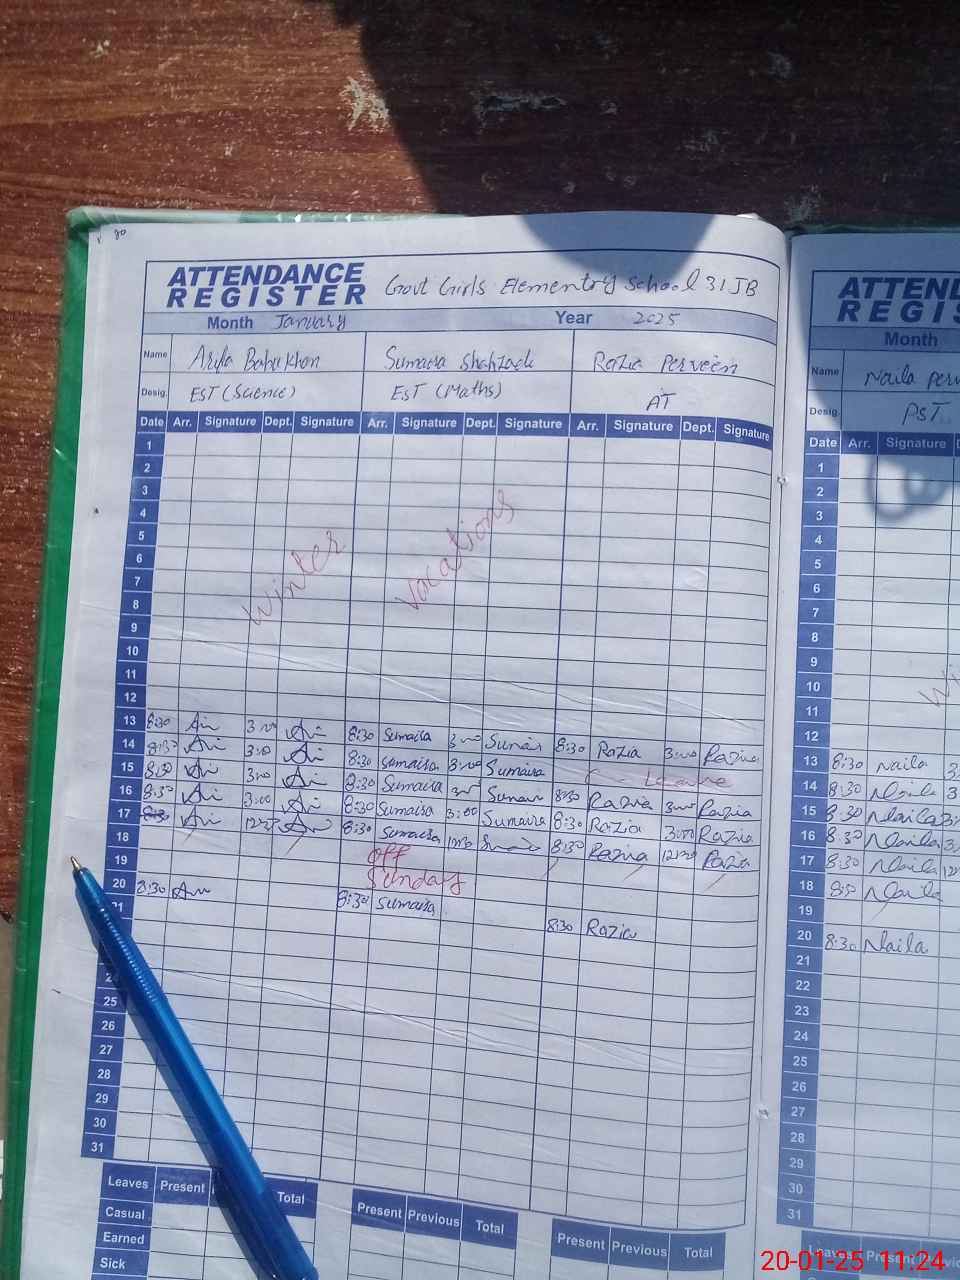 ATTENDANCE REGISTER Govt Girls Elementry School 31 JB
Month January Year 2025
Name Sumaira Shahzadi Razia Perveen
Desig. EST (Science) EST (Maths) AT
Date Arr. Signature Dept. Signature Arr. Signature Dept. Signature Arr. Signature Dept. Signature
1
2
3
4
5
6
7
8
9
10
11
12
Winter vacations
13 8:30 3:00 8:30 Sumaira 3:00 8:30 Razia 3:00 Razia
14 8:30 3:00 8:30 Sumaira 3:00 Sumaira Leave
15 8:30 3:00 8:30 Sumaira 3:00 8:30 Razia 3:00 Razia
16 8:30 3:00 8:30 Sumaira 3:00 Sumaira 8:30 Razia 3:00 Razia
17 8:30 12:30 8:30 Sumaira 12:30 8:30 Razia 12:30 Razia
18 off
19 Sunday
20 8:30 8:30 Sumaira 8:30 Razia
25
26
27
28
29
30
31
Leaves Present Total Present Previous Total Present Previous Total
Casual
Earned
Sick
Month
Name Naila
Desig. PST
Date Arr. Signature
1
2
3
4
5
6
7
8
9
10
11
12
13 8:30 Naila
14 8:30 Naila
15 8:30 Naila
16 8:30 Naila
17 8:30 Naila
18 Naila
19
20 8:30 Naila
21
22
23
24
25
26
27
28
29
30
31
Leaves Present
20-01-25 11:24